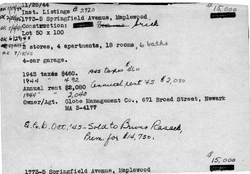 11/20/44
Inst. Listings # 3920
1773-5 Springfield Avenue, Maplewood $ 15,000
Construction: brick
Lot 50 x 100
2 stores, 4 apartments, 18 rooms 6 baths
4-car garage.
1943 taxes $460.
1944 " 492
Annual rent $2,000 Annual rent '45 $2,080
1944 " 2,040
Owner/Agt. Globe Management Co., 671 Broad Street, Newark
MA 3-4177
Oct. '45 - Sold to Bruno
Prem. for $14,750.
$ 15,000
1773-5 Springfield Avenue, Maplewood